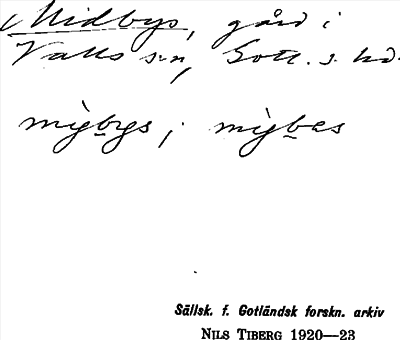 Midbys, gård i
Valls s:n, Gotl. s. hd.
mỳbys; mỳbes
Sällsk. f. Gotländsk forskn. arkiv
NILS TIBERG 1920—23